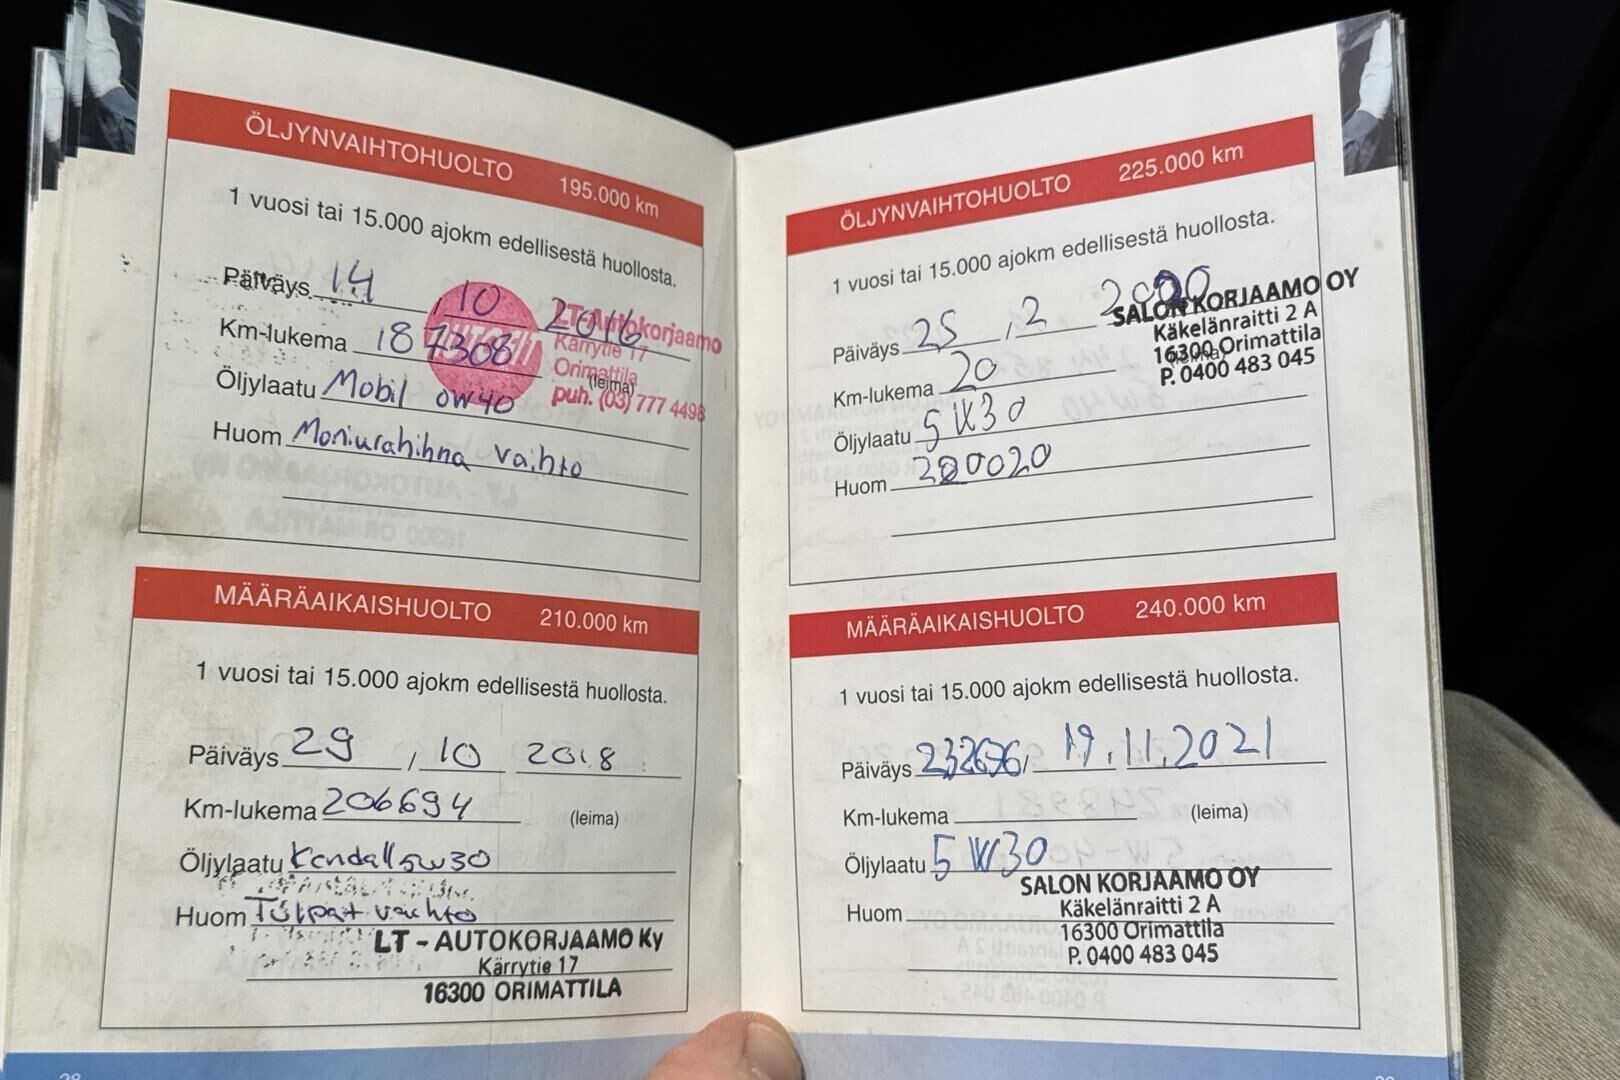 ÖLJYNVAIHTOHUOLTO 195.000 km
1 vuosi tai 15.000 ajokm edellisestä huollosta.
Päiväys 14 , 10 2016
Km-lukema 187308
Öljylaatu Mobil 0W40
Huom Moniurahihna vaihto
LT-Autokorjaamo
Kärrytie 17
Orimattila
(leima)
puh. (03) 777 4498
MÄÄRÄAIKAISHUOLTO 210.000 km
1 vuosi tai 15.000 ajokm edellisestä huollosta.
Päiväys 29 / 10 2018
Km-lukema 206694 (leima)
Öljylaatu Kendall 5W30
Huom Tulpat vaihto
LT - AUTOKORJAAMO Ky
Kärrytie 17
16300 ORIMATTILA
ÖLJYNVAIHTOHUOLTO 225.000 km
1 vuosi tai 15.000 ajokm edellisestä huollosta.
Päiväys 25 / 2 2020
Km-lukema 20
Öljylaatu 5W30
Huom
SALON KORJAAMO OY
Käkelänraitti 2 A
16300 Orimattila
P. 0400 483 045
MÄÄRÄAIKAISHUOLTO 240.000 km
1 vuosi tai 15.000 ajokm edellisestä huollosta.
Päiväys 232656 / 19.11.2021
Km-lukema (leima)
Öljylaatu 5W30
Huom
SALON KORJAAMO OY
Käkelänraitti 2 A
16300 Orimattila
P. 0400 483 045